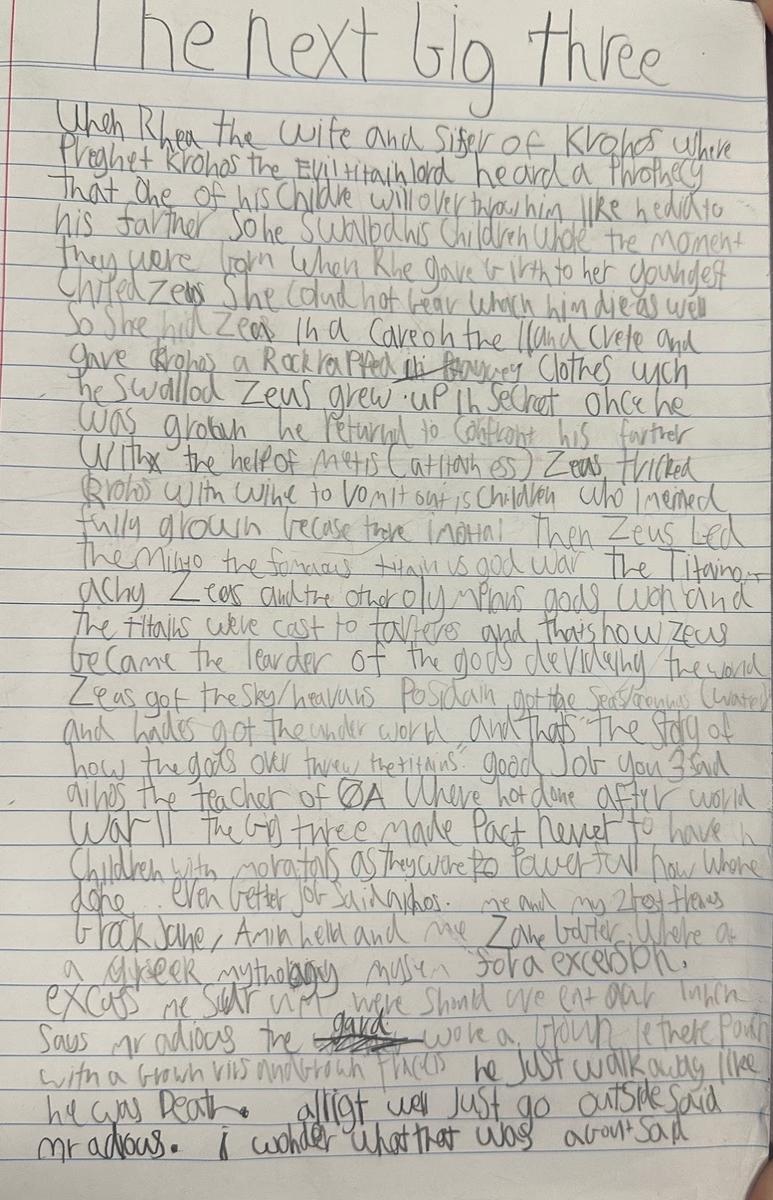 The next big three
When Rhea the wife and sifer of Kronos where
Preghet Kronos the Evil titain lord heard a Phrothecy
that one of his childre will over throw him like he did to
his farther so he swalod his children whole the moment
they were born when Rhe gave birth to her youngest
chiled Zeus she colud not bear whach him die as well
So she hid Zeas in a cave on the Iland Crete and
gave Kronos a Rock rapped in clothes wich
he swallod Zeus grew up in secret once he
was grown he returnd to confront his farther
With the help of metis (a titan ess) Zeas tricked
Kronos with wine to vomit out is children who
fully grown becase there imortal Then Zeus Led
the the fomous titain vs god war The Titaino
achy Zeas and the other olympians gods won and
the titains were cast to tarteres and thats how Zeus
became the learder of the gods devideing the world
Zeas got the sky/heavans Posidain got the (water)
and hades got the under world and thats "the story of
how the gods over threw the titains" good Job you 3 said
the teacher of ØA where not done after world
War II the big three made Pact never to have
children with moratals as they were to Powerfull now where
done. even better job said me and my 2 best
brock Jane, Amin held and me Zane Where
a greek mythology for a excersion.
excuss me were should we eat our lunch
says mr adious the gard wore a brown lethere
with a brown and brown he just walk away like
he was Death. alligt well just go outside said
mr adious. i wonder what that was about sad